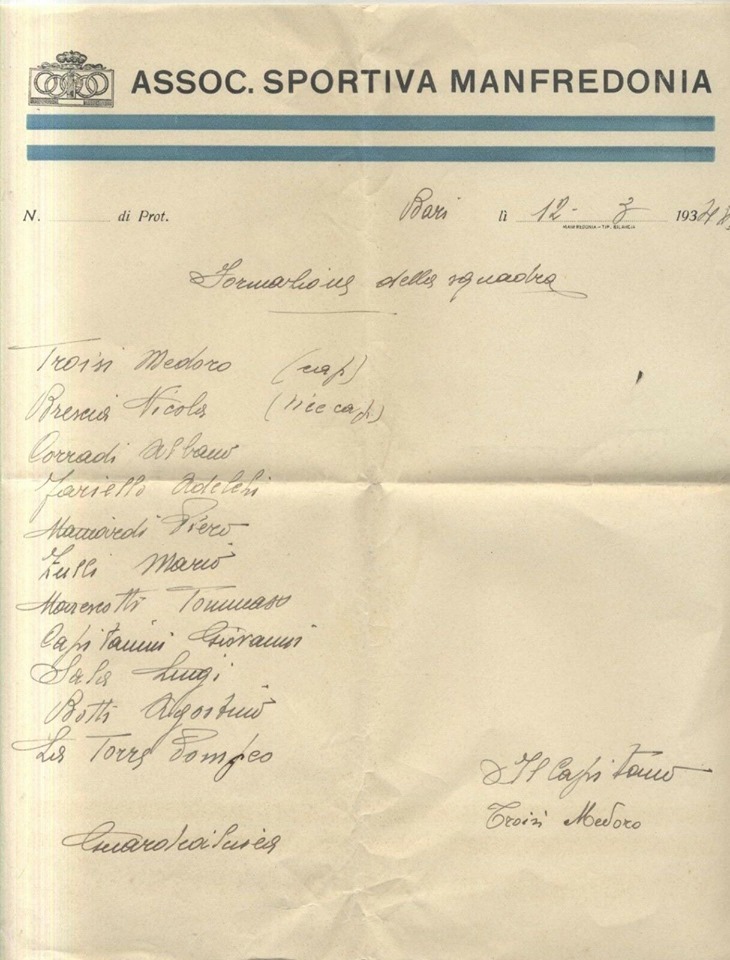 ASSOC. SPORTIVA MANFREDONIA
N. di Prot. Bari lì 12 - 3 193
MANFREDONIA - TIP. BILANCIA
Formazione della squadra
Troisi Medoro (cap)
Brescia Nicola (vice cap)
Corradi Albano
Fariello Adelchi
Piero
Zulli Mario
Marescotti Tommaso
Capitanini Giovanni
Sala Luigi
Botti Agostino
La Torre Pompeo
Il Capitano
Troisi Medoro
Guardialinea